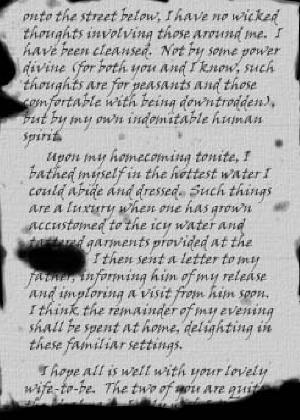 onto the street below, I have no wicked
thoughts involving those around me. I
have been cleansed. Not by some power
divine (for both you and I know, such
thoughts are for peasants and those
comfortable with being downtrodden),
but by my own indomitable human
spirit.
Upon my homecoming tonite, I
bathed myself in the hottest water I
could abide and dressed. Such things
are a luxury when one has grown
accustomed to the icy water and
tattered garments provided at the
I then sent a letter to my
father, informing him of my release
and imploring a visit from him soon.
I think the remainder of my evening
shall be spent at home, delighting in
these familiar settings.
I hope all is well with your lovely
wife-to-be. The two of you are quite